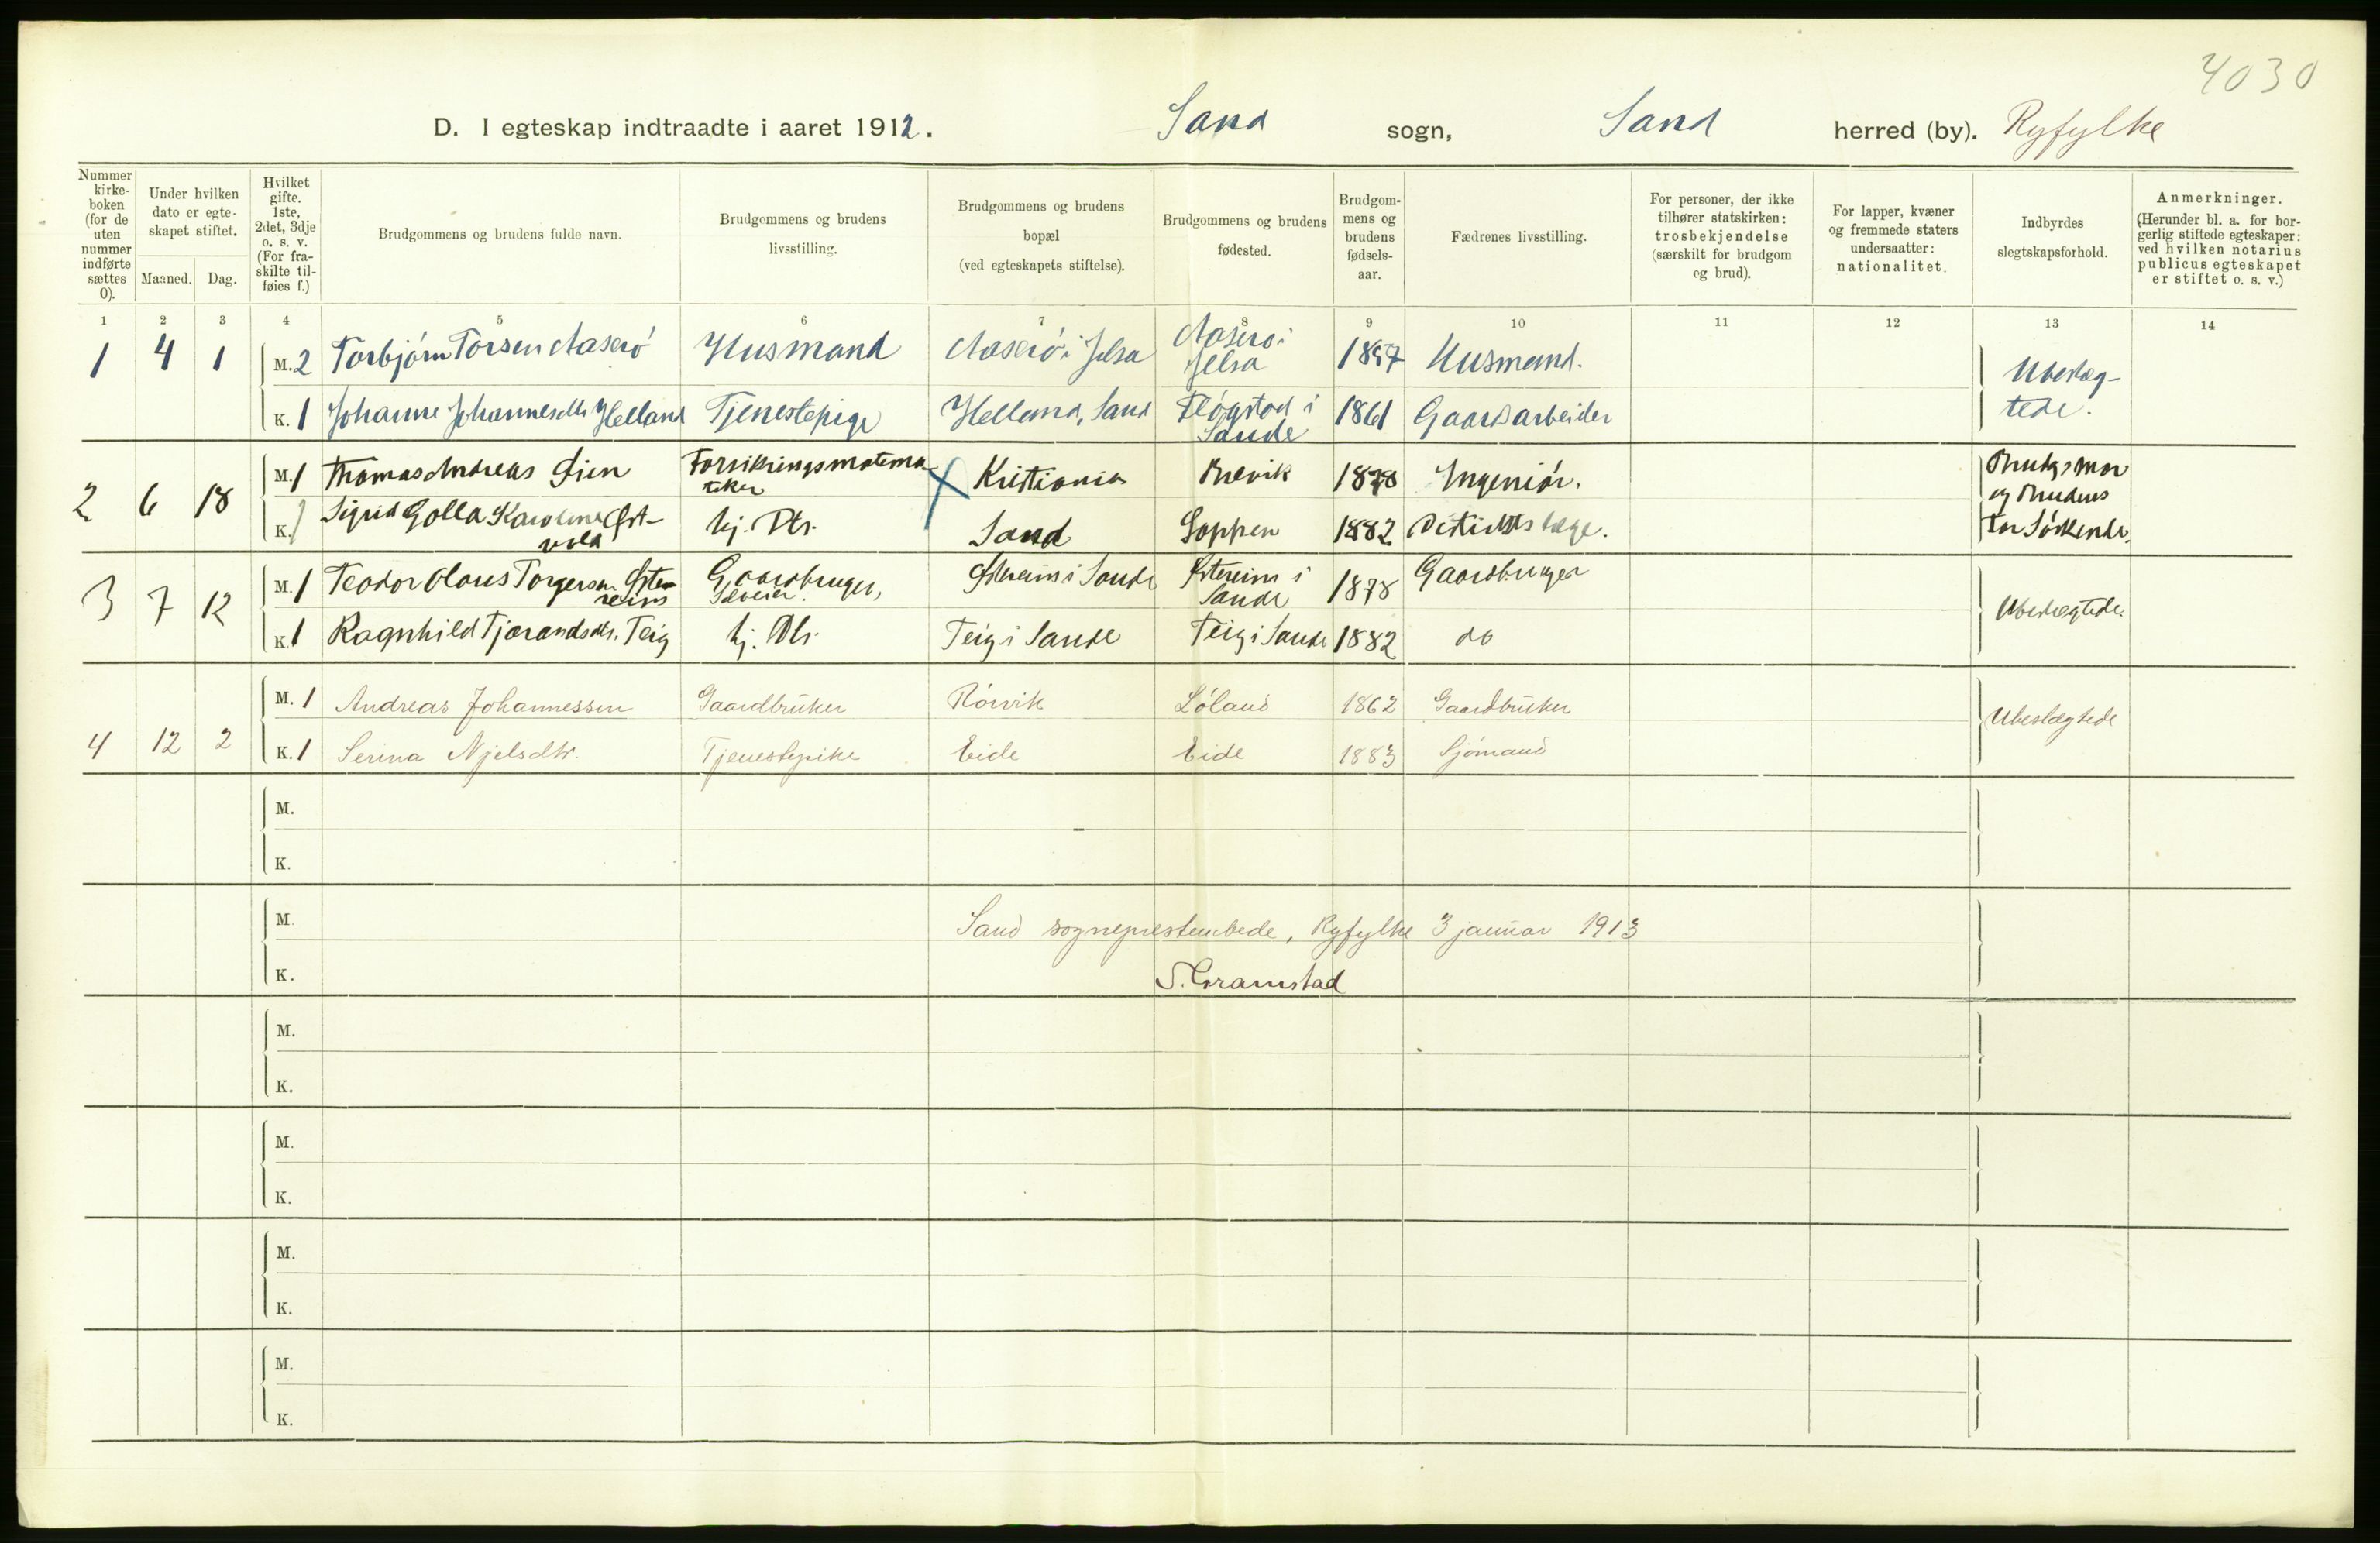 4030
D. I egteskap indtraadte i aaret 1912. Sand sogn, Sand herred (by). Ryfylke
Nummer kirke-boken (for de uten nummer indførte sættes 0).
Under hvilken dato er egte-skapet stiftet.
Maaned. Dag.
Hvilket gifte. 1ste, 2det, 3dje o. s. v. (For fra-skilte til-føies f.)
Brudgommens og brudens fulde navn.
Brudgommens og brudens livsstilling.
Brudgommens og brudens bopæl (ved egteskapets stiftelse).
Brudgommens og brudens fødested.
Brudgom-mens og brudens fødsels-aar.
Fædrenes livsstilling.
For personer, der ikke tilhører statskirken: trosbekjendelse (særskilt for brudgom og brud).
For lapper, kvæner og fremmede staters undersaatter: nationalitet.
Indbyrdes slegtskapsforhold.
Anmerkninger. (Herunder bl. a. for bor-gerlig stiftede egteskaper: ved hvilken notarius publicus egteskapet er stiftet o. s. v.)
1 2 3 4 5 6 7 8 9 10 11 12 13 14
1 4 1 M. 2 Torbjørn Torsen Aaserø Husmand Aaserø i Jelsa Aaserø i Jelsa 1857 Husmand. Ubeslæg-tede.
K. 1 Johanne Johannesdtr Helland Tjenestepige Helland, Sand Fløgstad i Sande 1861 Gaardsarbeider
2 6 18 M. 1 Thomas Andreas Sien Forsikringsmatematiker X Kristiania Brevik 1878 Ingeniør. Brudgs mor og Brudens Far Søskende.
K. 1 Sigrid Golla Karoline Østvold hj. Dtr. Sand Loppen 1882 Distriktslæge.
3 7 12 M. 1 Teodor Olaus Torgersen Østereim Gaardbruger, Selveier. Østereim i Sande Østereim i Sande 1878 Gaardbruger Ubeslægtede.
K. 1 Ragnhild Tjærandsdtr. Teig hj. Dtr. Teig i Sande Teig i Sande 1882 do
4 12 2 M. 1 Andreas Johannessen Gaardbruker Rørvik Løland 1862 Gaardbruker Ubeslægtede
K. 1 Serina Njelsdtr. Tjenestepike Eide Eide 1883 Sjømand
M.
K.
M.
Sand sogneprestembede, Ryfylke 3 januar 1913
K.
S. Gramstad
M.
K.
M.
K.
M.
K.
M.
K.